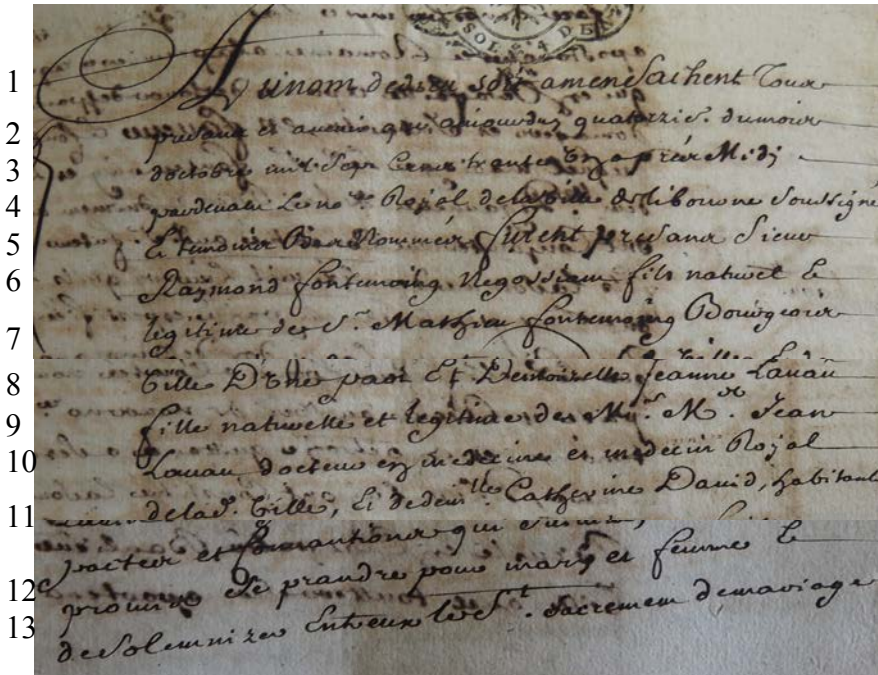 SOL 4 DEN
1 Au nom de dieu soit amen Sachent tous
2 presens et avenir que aujourduy quatorzie. du mois
3 doctobre mil Sept Cens trente En apres Midj
4 pardevant Le no.re Royal de la Ville de libourne Soussigné
5 Et temoins Bas Nommés furent presans Sieur
6 Raymond fontemoing Negossiant fils naturel E
7 legitime de S.r Mathieu fontemoing Bourgeois
8 Ville D'une part Et Demoiselle Jeanne Lavau
9 fille naturelle et legitime de M.r M.e Jean
10 Lavau docteur en medecine et medecin Royal
delad. Ville, Et de dem.lle Catherine David, habitants
11 pactes et conventions qui
12 promis Se prandre pour mary et femme E
13 de Solemnizer Entreux le St. Sacrement de mariage